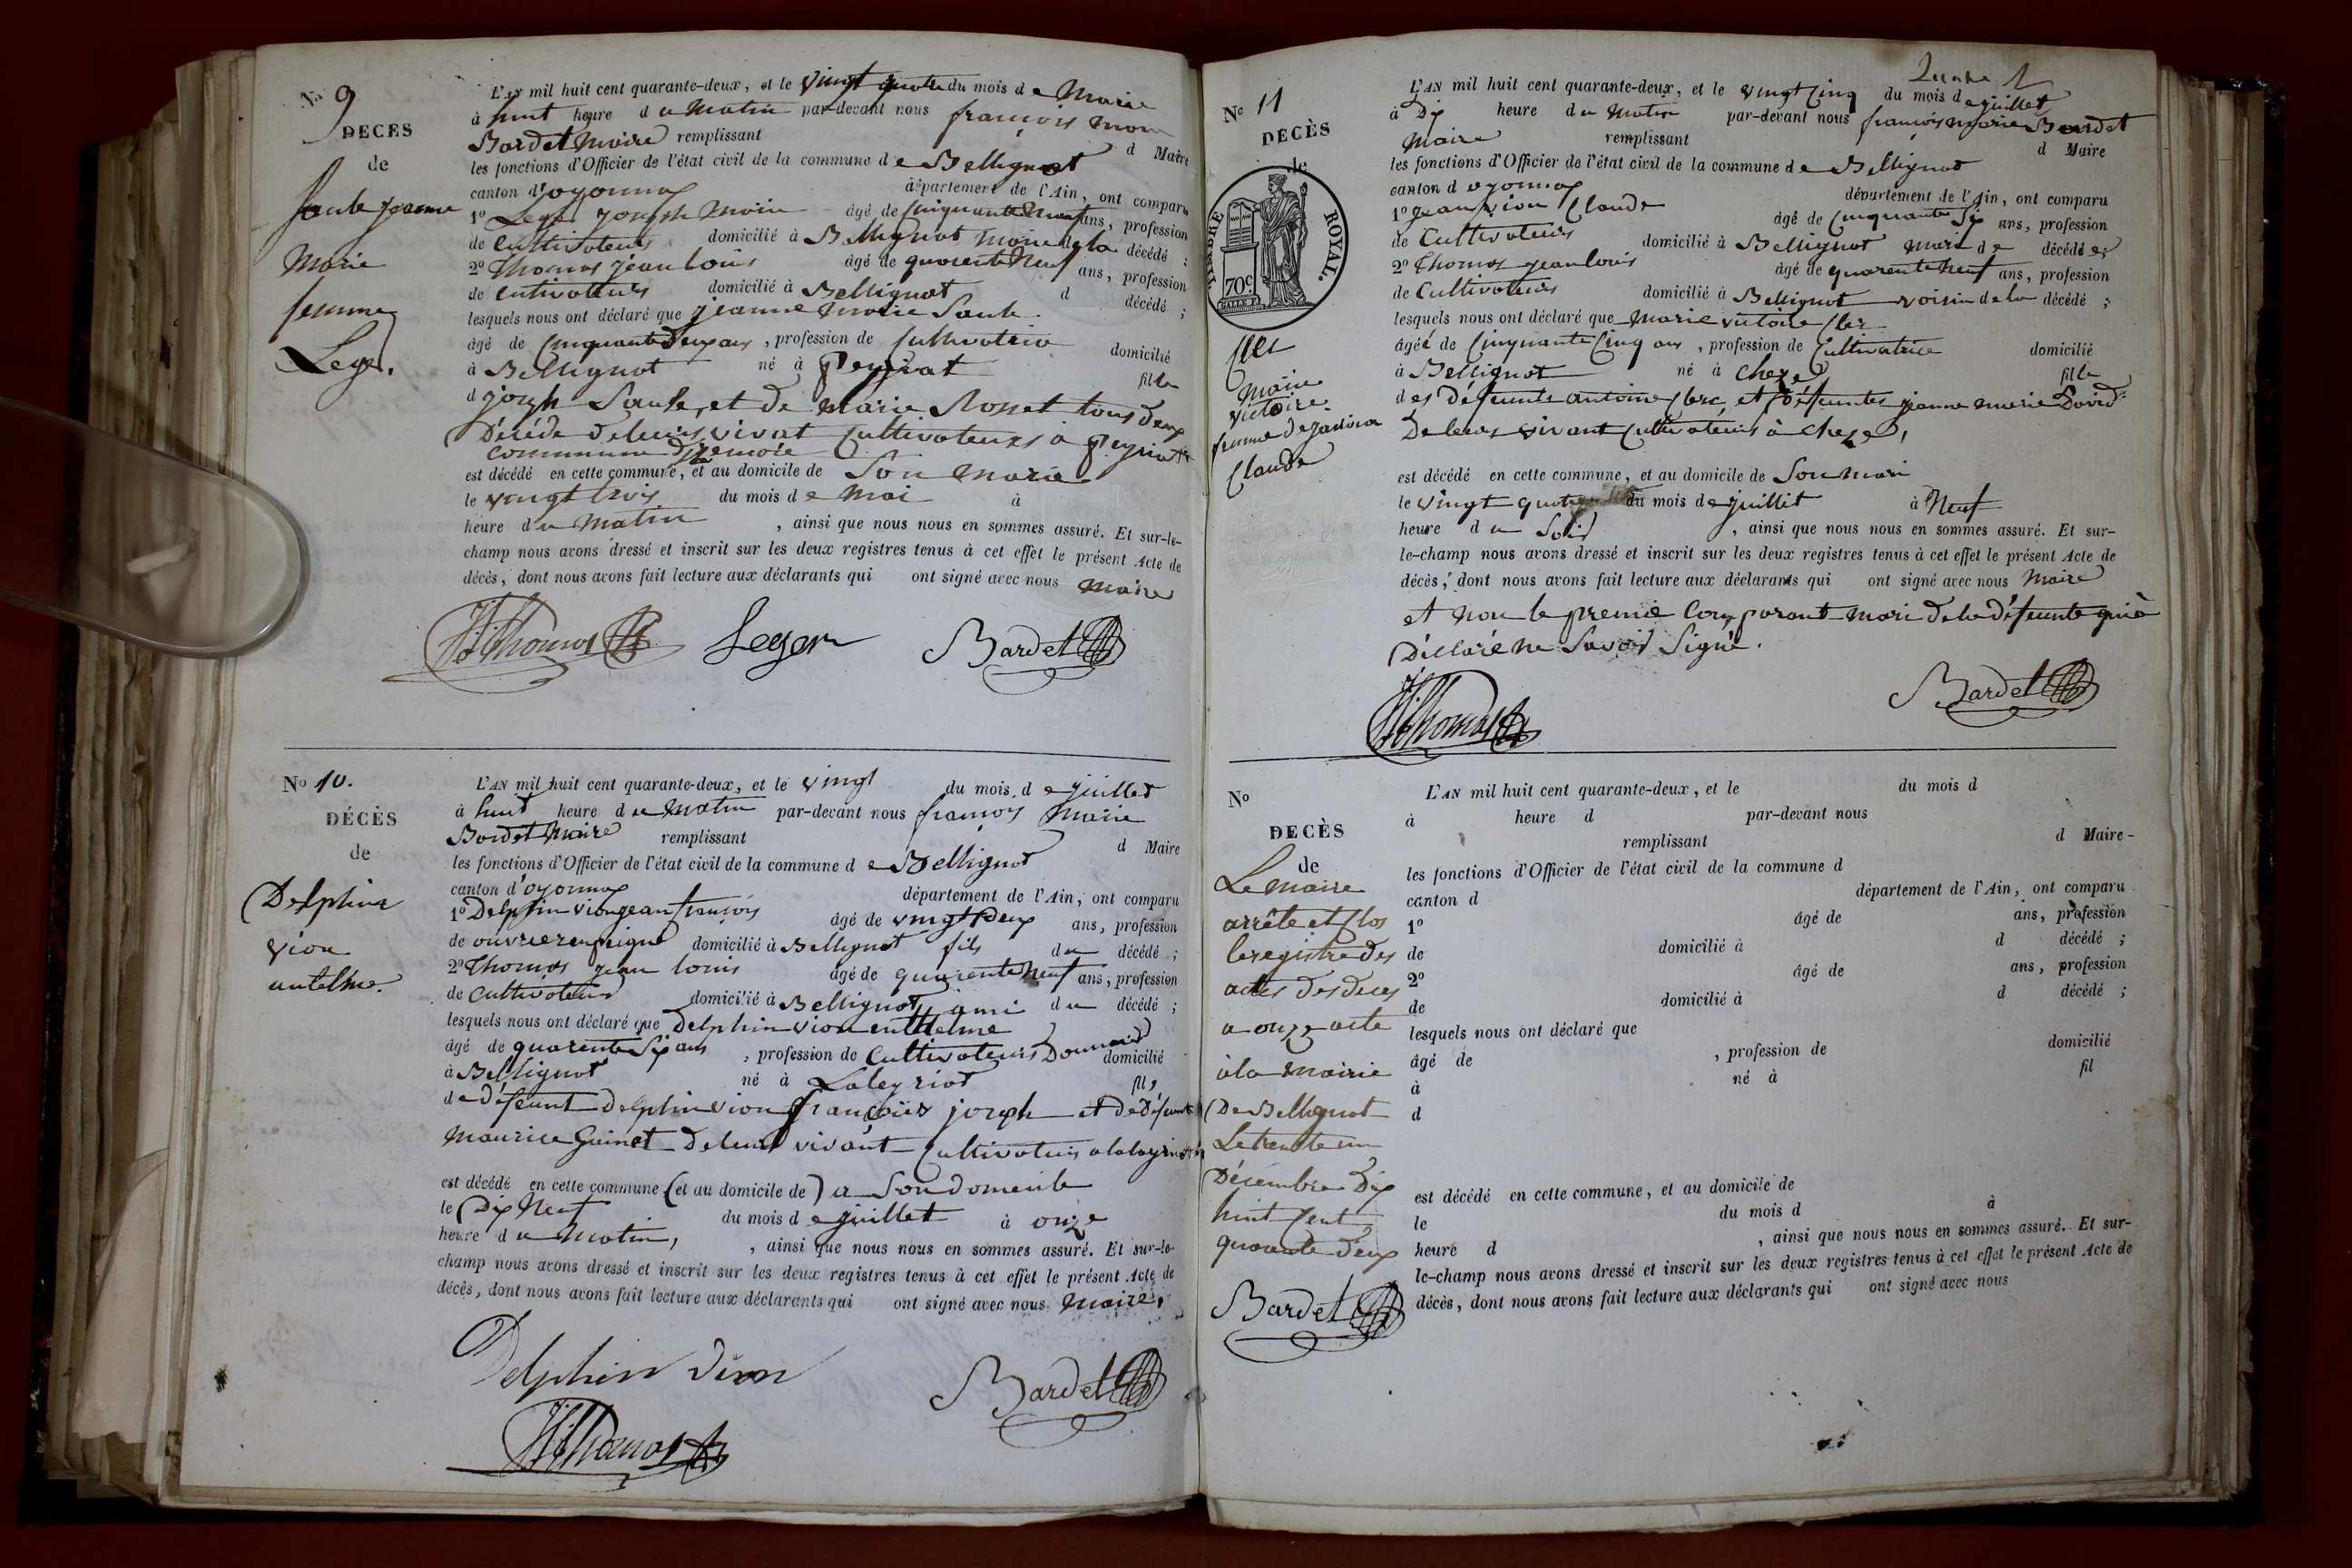 No 9
DECES
de
Saule jeanne
Marie
femme
Leger.
L'AN mil huit cent quarante-deux, et le vingt quatre du mois de Maie
à huit heure du Matin par-devant nous françois Marie
Bardet Maire remplissant d Maire
les fonctions d'Officier de l'état civil de la commune de Bellignat
canton d'oyonnax département de l'Ain, ont comparu
1o Leger Joseph Marie âgé de cinquante neuf ans, profession
de Cultivateurs domicilié à Bellignat Marie de la décédé ;
2o Thomas jean louis âgé de quarente Neuf ans, profession
de Cutivateurs domicilié à Bellignat d décédé ;
lesquels nous ont déclaré que jeanne Marie Saule
âgé de cinquante Deux ans, profession de Cultivatrice domicilié
à Bellignat né à Peyriat fille
d joseph Saule, et de Marie Rosset tous deux
Décéde de leurs vivat Cultivateurs à Peyriat
commune
est décédé en cette commune, et au domicile de Son Marie
le vingt trois du mois de Mai à
heure du Matin, ainsi que nous nous en sommes assuré. Et sur-le-
champ nous avons dressé et inscrit sur les deux registres tenus à cet effet le présent Acte de
décès, dont nous avons fait lecture aux déclarants qui ont signé avec nous Maire
Thomas Leger Bardet
No 10.
DÉCÈS
de
Delphin
vion
antelme.
L'AN mil huit cent quarante-deux, et le vingt du mois de juillet
à huit heure du Matin par-devant nous françois Marie
Bardet Maire remplissant d Maire
les fonctions d'Officier de l'état civil de la commune de Bellignat
canton d'oyonnax département de l'Ain, ont comparu
1o Delphin vion jean françois âgé de vingt Deux ans, profession
de ouvrier en peigne domicilié à Bellignat fils du décédé ;
2o Thomas jean louis âgé de quarente Neuf ans, profession
de Cultivateur domicilié à Bellignat, ami du décédé ;
lesquels nous ont déclaré que Delphin vion enthelme
âgé de quarente Six ans, profession de Cultivateurs domicilié
à Bellignat né à Laleyriat fils
de défeunt Delphin vion françois joseph et de Défeunte
Maurice Guinet De leur vivant Cultivateurs a laleyriat
est décédé en cette commune (et au domicile de) a Son domicile
le Dix Neuf du mois de juillet à onze
heure du Matin, ainsi que nous nous en sommes assuré. Et sur-le-
champ nous avons dressé et inscrit sur les deux registres tenus à cet effet le présent Acte de
décès, dont nous avons fait lecture aux déclarants qui ont signé avec nous Maire,
Delphin Vion Bardet
Thomas
No 11
DÉCÈS
de
TIMBRE ROYAL.
70c
Clers
Marie
victoire
femme de janvion
Claude
L'AN mil huit cent quarante-deux, et le vingt Cinq du mois de juillet
à Dix heure du Matin par-devant nous françois Marie Bardet
Maire remplissant d Maire
les fonctions d'Officier de l'état civil de la commune de Bellignat
canton d oyonnax département de l'Ain, ont comparu
1o jeanvion Claude âgé de cinquante Six ans, profession
de Cultivateurs domicilié à Bellignat mari de décédé e;
2o Thomas jean louis âgé de quarente Neuf ans, profession
de Cultivateurs domicilié à Bellignat voisin de la décédé ;
lesquels nous ont déclaré que Marie victoire Clerc
âgéé de Cinquante Cinq ans, profession de Cultivatrice domicilié
à Bellignat né à Cheze fille
des Défeunts antoine Clerc et Défeuntes jeanne Marie David
De leurs vivant Cultivateurs à Cheze,
est décédé en cette commune, et au domicile de Son Mari
le vingt quatre du mois de juillet à Neuf
heure du Soir, ainsi que nous nous en sommes assuré. Et sur-
le-champ nous avons dressé et inscrit sur les deux registres tenus à cet effet le présent Acte de
décès, dont nous avons fait lecture aux déclarants qui ont signé avec nous Maire
et non le premie Comparant mari de la défeunte qui à
Déclaré ne Savoir Signé.
Thomas Bardet
No
DECÈS
de
Le Maire
arrête et Clos
le registre des
actes des deces
a onze acte
à la Mairie
De Bellignat
Le trente un
Décembre Dix
huit Cent
quarante deux
Bardet
L'AN mil huit cent quarante-deux, et le du mois d
à heure d par-devant nous
remplissant d Maire
les fonctions d'Officier de l'état civil de la commune d
canton d département de l'Ain, ont comparu
1o âgé de ans, profession
de domicilié à d décédé ;
2o âgé de ans, profession
de domicilié à d décédé ;
lesquels nous ont déclaré que
âgé de , profession de domicilié
à né à fil
d
est décédé en cette commune, et au domicile de
le du mois d à
heure d , ainsi que nous nous en sommes assuré. Et sur-
le-champ nous avons dressé et inscrit sur les deux registres tenus à cet effet le présent Acte de
décès, dont nous avons fait lecture aux déclarants qui ont signé avec nous